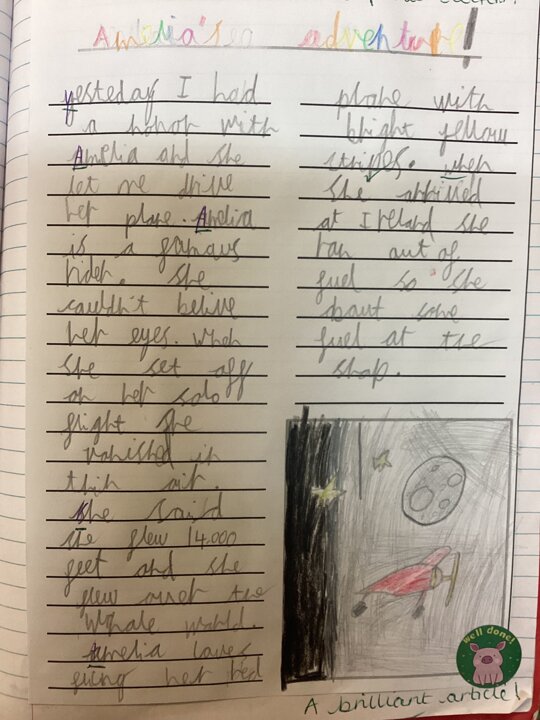 Amelia's adventure!
yesteday I had
a honor with
Amelia and she
let me drive
her plane. Amelia
is a famous
rider. she
couldn't belive
her eyes. when
she set off
on her solo
flight she
vanished in
thin air.
she said
she flew 14.000
feet and she
flew over the
whole world.
Amelia loves
fliing her red
plane with
bright yellow
stripes. when
she arrived
at Ireland she
ran out of
fuel so she
bout some
fuel at the
shop.
well done!
A brilliant article!